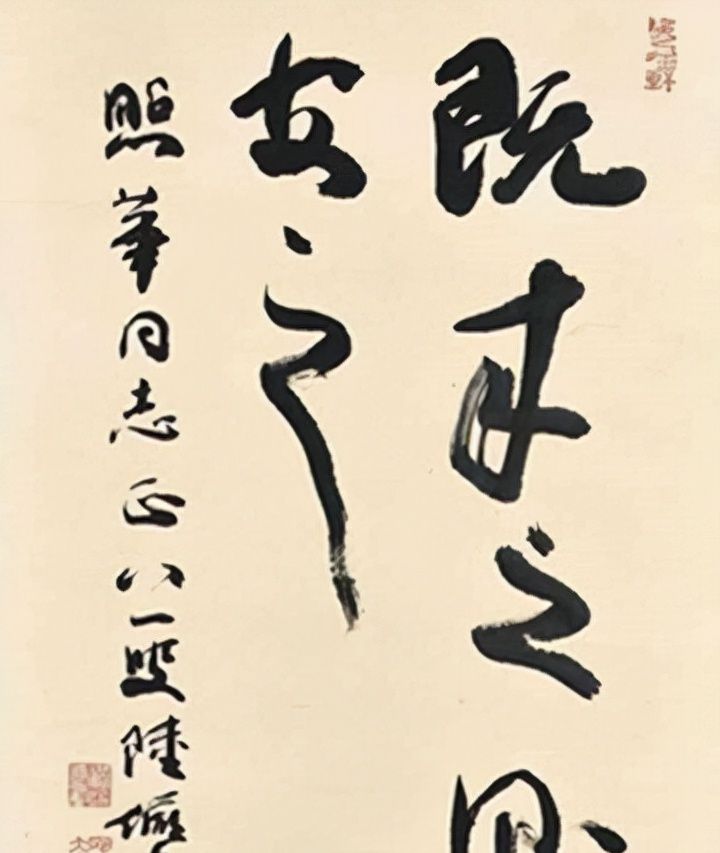 既来之则
安之
照華同志正八一叟陸儼